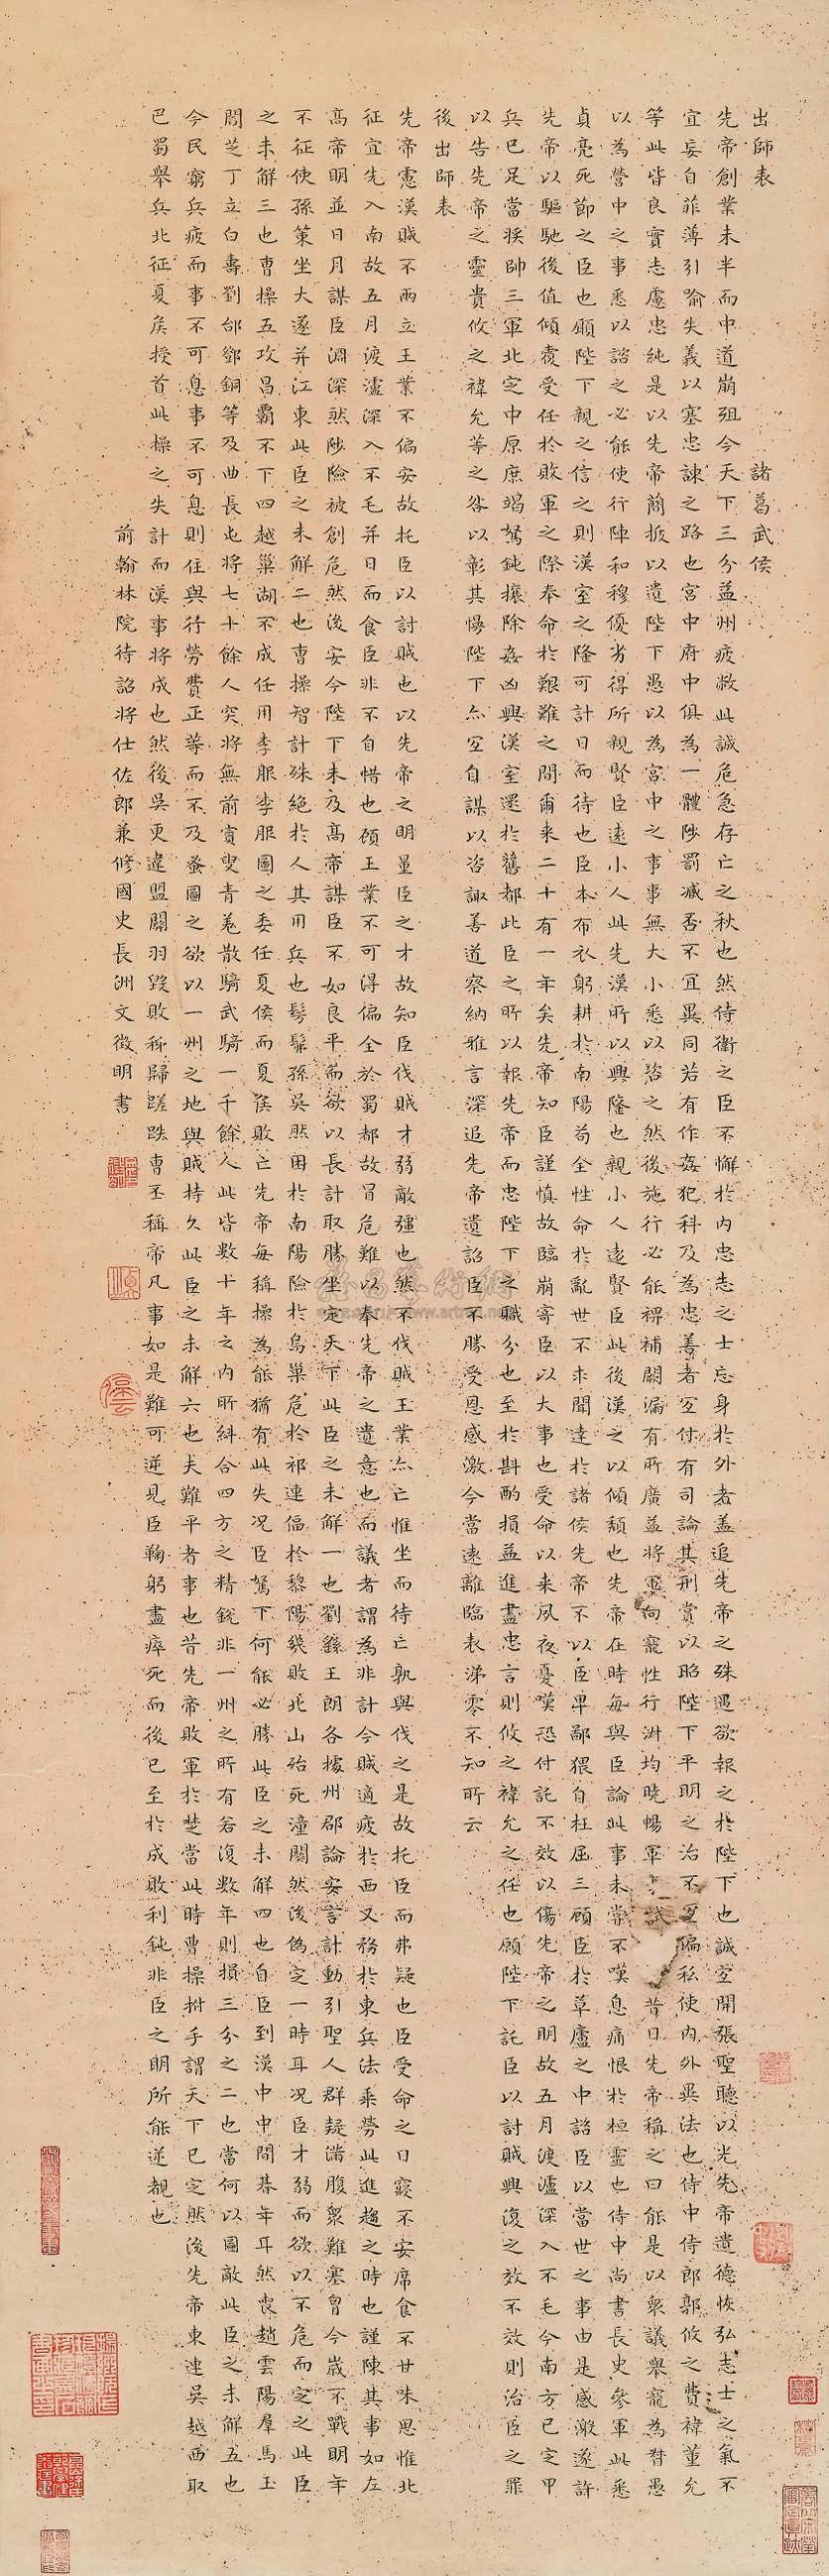 出師表 諸葛武侯
先帝創業未半而中道崩殂今天下三分益州疲敝此誠危急存亡之秋也然侍衛之臣不懈於內忠志之士忘身於外者蓋追先帝之殊遇欲報之於陛下也誠宜開張聖聽以光先帝遺德恢弘志士之氣不
宜妄自菲薄引喻失義以塞忠諫之路也宮中府中俱為一體陟罰臧否不宜異同若有作姦犯科及為忠善者宜付有司論其刑賞以昭陛下平明之治不宜偏私使內外異法也侍中侍郎郭攸之費禕董允
等此皆良實志慮忠純是以先帝簡拔以遺陛下愚以為宮中之事事無大小悉以咨之然後施行必能裨補闕漏有所廣益將軍向寵性行淑均曉暢軍 試 昔日先帝稱之曰能是以眾議舉寵為督愚
以為營中之事悉以諮之必能使行陣和穆優劣得所親賢臣遠小人此先漢所以興隆也親小人遠賢臣此後漢之以傾頹也先帝在時每與臣論此事未嘗不嘆息痛恨於桓靈也侍中尚書長史參軍此悉
貞亮死節之臣也願陛下親之信之則漢室之隆可計日而待也臣本布衣躬耕於南陽苟全性命於亂世不求聞達於諸侯先帝不以臣卑鄙猥自枉屈三顧臣於草廬之中諮臣以當世之事由是感激遂許
先帝以驅馳後值傾覆受任於敗軍之際奉命於艱難之間爾來二十有一年矣先帝知臣謹慎故臨崩寄臣以大事也受命以來夙夜憂嘆恐付託不效以傷先帝之明故五月渡瀘深入不毛今南方已定甲
兵已足當獎帥三軍北定中原庶竭駑鈍攘除姦凶興漢室還於舊都此臣之所以報先帝而忠陛下之職分也至於斟酌損益進盡忠言則攸之禕允之任也願陛下託臣以討賊興復之效不效則治臣之罪
以告先帝之靈責攸之禕允等之咎以彰其慢陛下亦宜自謀以咨諏善道察納雅言深追先帝遺詔臣不勝受恩感激今當遠離臨表涕零不知所云
後出師表
先帝慮漢賊不兩立王業不偏安故托臣以討賊也以先帝之明量臣之才故知臣伐賊才弱敵彊也然不伐賊王業亦亡惟坐而待亡孰與伐之是故托臣而弗疑也臣受命之日寢不安席食不甘味思惟北
征宜先入南故五月渡瀘深入不毛并日而食臣非不自惜也顧王業不可得偏全於蜀都故冒危難以奉先帝之遺意也而議者謂為非計今賊適疲於西又務於東兵法乘勞此進趨之時也謹陳其事如左
高帝明並日月謀臣淵深然陟險被創危然後安今陛下未及高帝謀臣不如良平而欲以長計取勝坐定天下此臣之未解一也劉繇王朗各據州郡論安言計動引聖人群疑滿腹眾難塞胷今歲不戰明年
不征使孫策坐大遂并江東此臣之未解二也曹操智計殊絕於人其用兵也髣髴孫吳然困於南陽險於烏巢危於祁連偪於黎陽幾敗北山殆死潼關然後偽定一時耳況臣才弱而欲以不危而定之此臣
之未解三也曹操五攻昌霸不下四越巢湖不成任用李服李服圖之委任夏侯而夏侯敗亡先帝每稱操為能猶有此失況臣駑下何能必勝此臣之未解四也自臣到漢中中間朞年耳然喪趙雲陽羣馬玉
閻芝丁立白壽劉郃鄧銅等及曲長屯將七十餘人突將無前賨叟青羌散騎武騎一千餘人此皆數十年之內所糾合四方之精銳非一州之所有若復數年則損三分之二也當何以圖敵此臣之未解五也
今民窮兵疲而事不可息事不可息則住與行勞費正等而不及蚤圖之欲以一州之地與賊持久此臣之未解六也夫難平者事也昔先帝敗軍於楚當此時曹操拊手謂天下已定然後先帝東連吳越西取
巴蜀舉兵北征夏侯授首此操之失計而漢事將成也然後吳更違盟關羽毀敗秭歸蹉跌曹丕稱帝凡事如是難可逆見臣鞠躬盡瘁死而後已至於成敗利鈍非臣之明所能逆覩也
前翰林院待詔將仕佐郎兼修國史長洲文徵明書